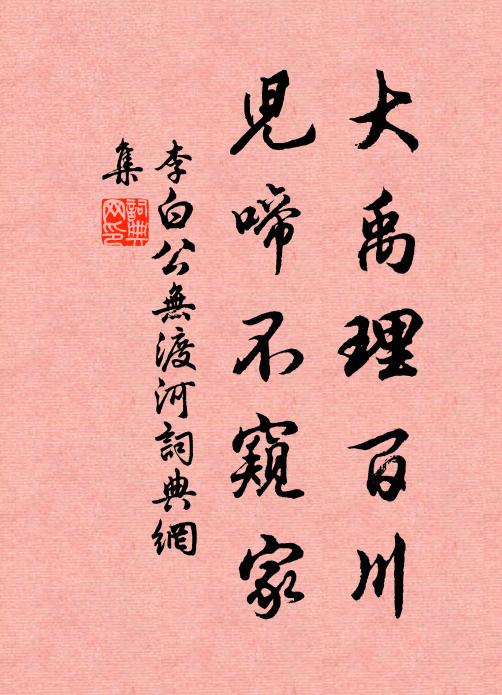 大禹理百川
兒啼不窺家
李白公無渡河詞典網
集
詞典
网印